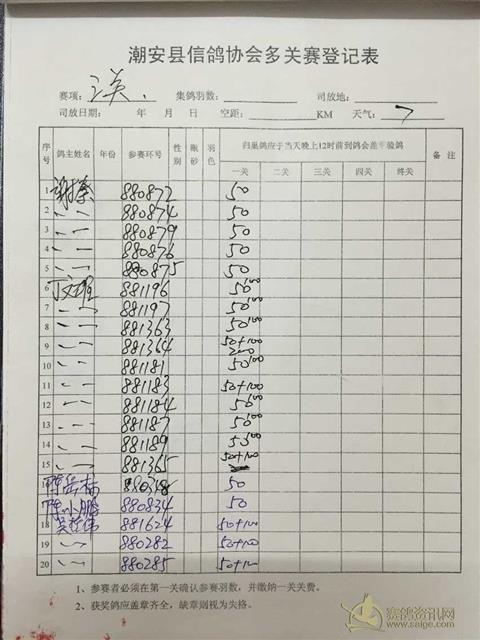 潮安县信鸽协会多关赛登记表
赛项: 三关. 集鸽羽数: 司放地:
司放日期: 年 月 日 空距: KM 天气:
序号 鸽主姓名 年份 参赛环号 性别 眼砂 羽色 归巢鸽应于当天晚上12时前到鸽会 验鸽 备注
一关 二关 三关 四关 终关
1 880872 50
2 〃 880874 50
3 〃 880879 50
4 〃 880876 50
5 〃 880875 50
6 881196 50 100
7 〃 881197 50 100
8 〃 881363 50 100
9 〃 881364 50+100
200
10 〃 881181 50 100
11 〃 881183 50+100
12 〃 881184 50 100
13 〃 881187 50 100
14 〃 881189 50 100
15 〃 881365 50+100
50
陈小鹏 880834 50
18 881624 50+100
19 〃 880282 50+100
20 〃 880285 50+100
1、参赛者必须在第一关确认参赛羽数，并缴纳一关关费。
2、获奖鸽应盖章齐全，缺章则视为失格。
赛鸽资讯网
www.saige.com